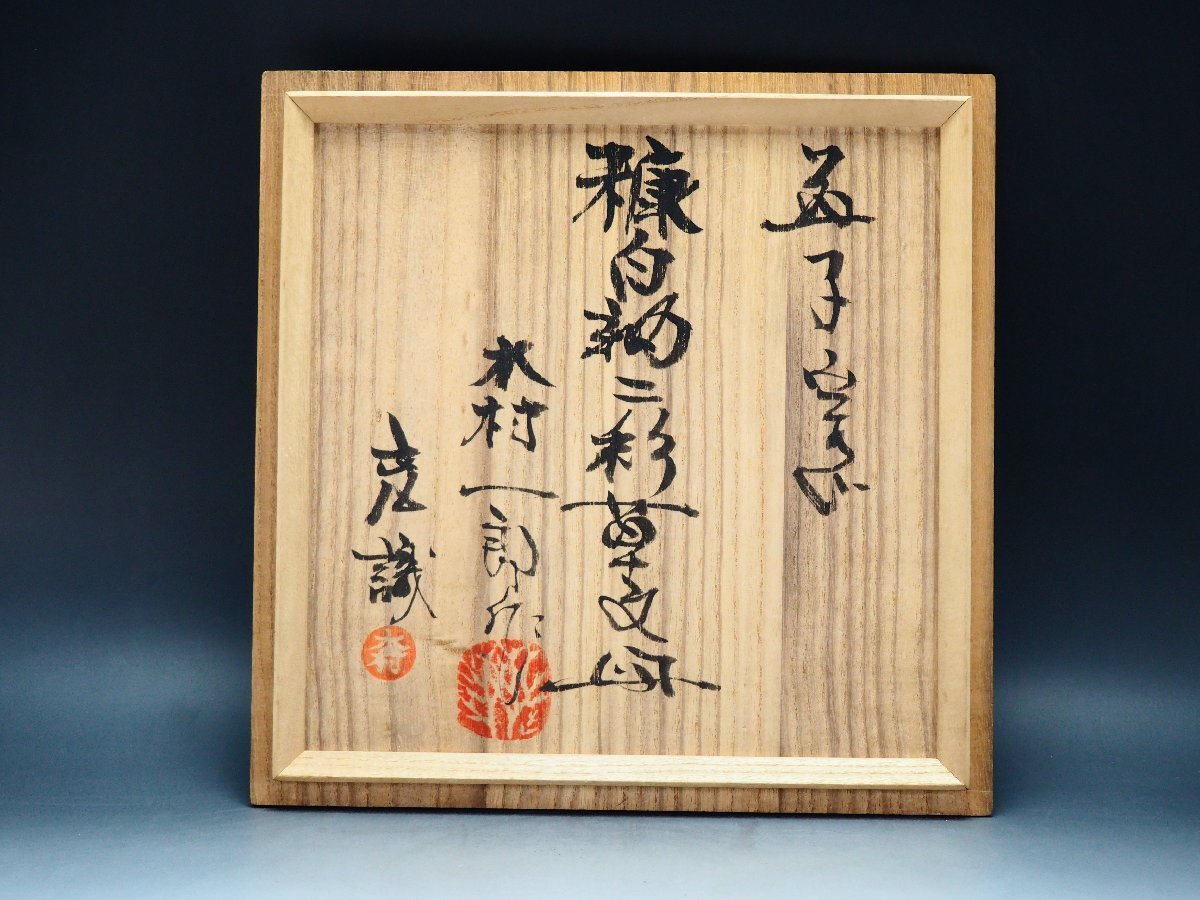 益子窯
糠白釉二彩草文皿
木村一郎作
充識
木村